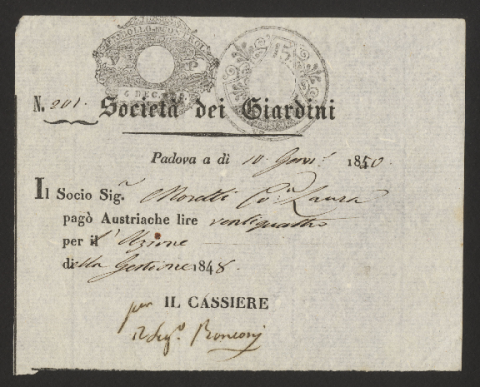 BOLLO
15
4 DEC.
N. 201. Società dei Giardini
Padova a dì 10 Genn.° 1850.
Il Socio Sig.ª Moretti Co.ª Laura
pagò Austriache lire ventiquattro
per il l' Azione
della Gestione 1848.
per IL CASSIERE
Ronconi